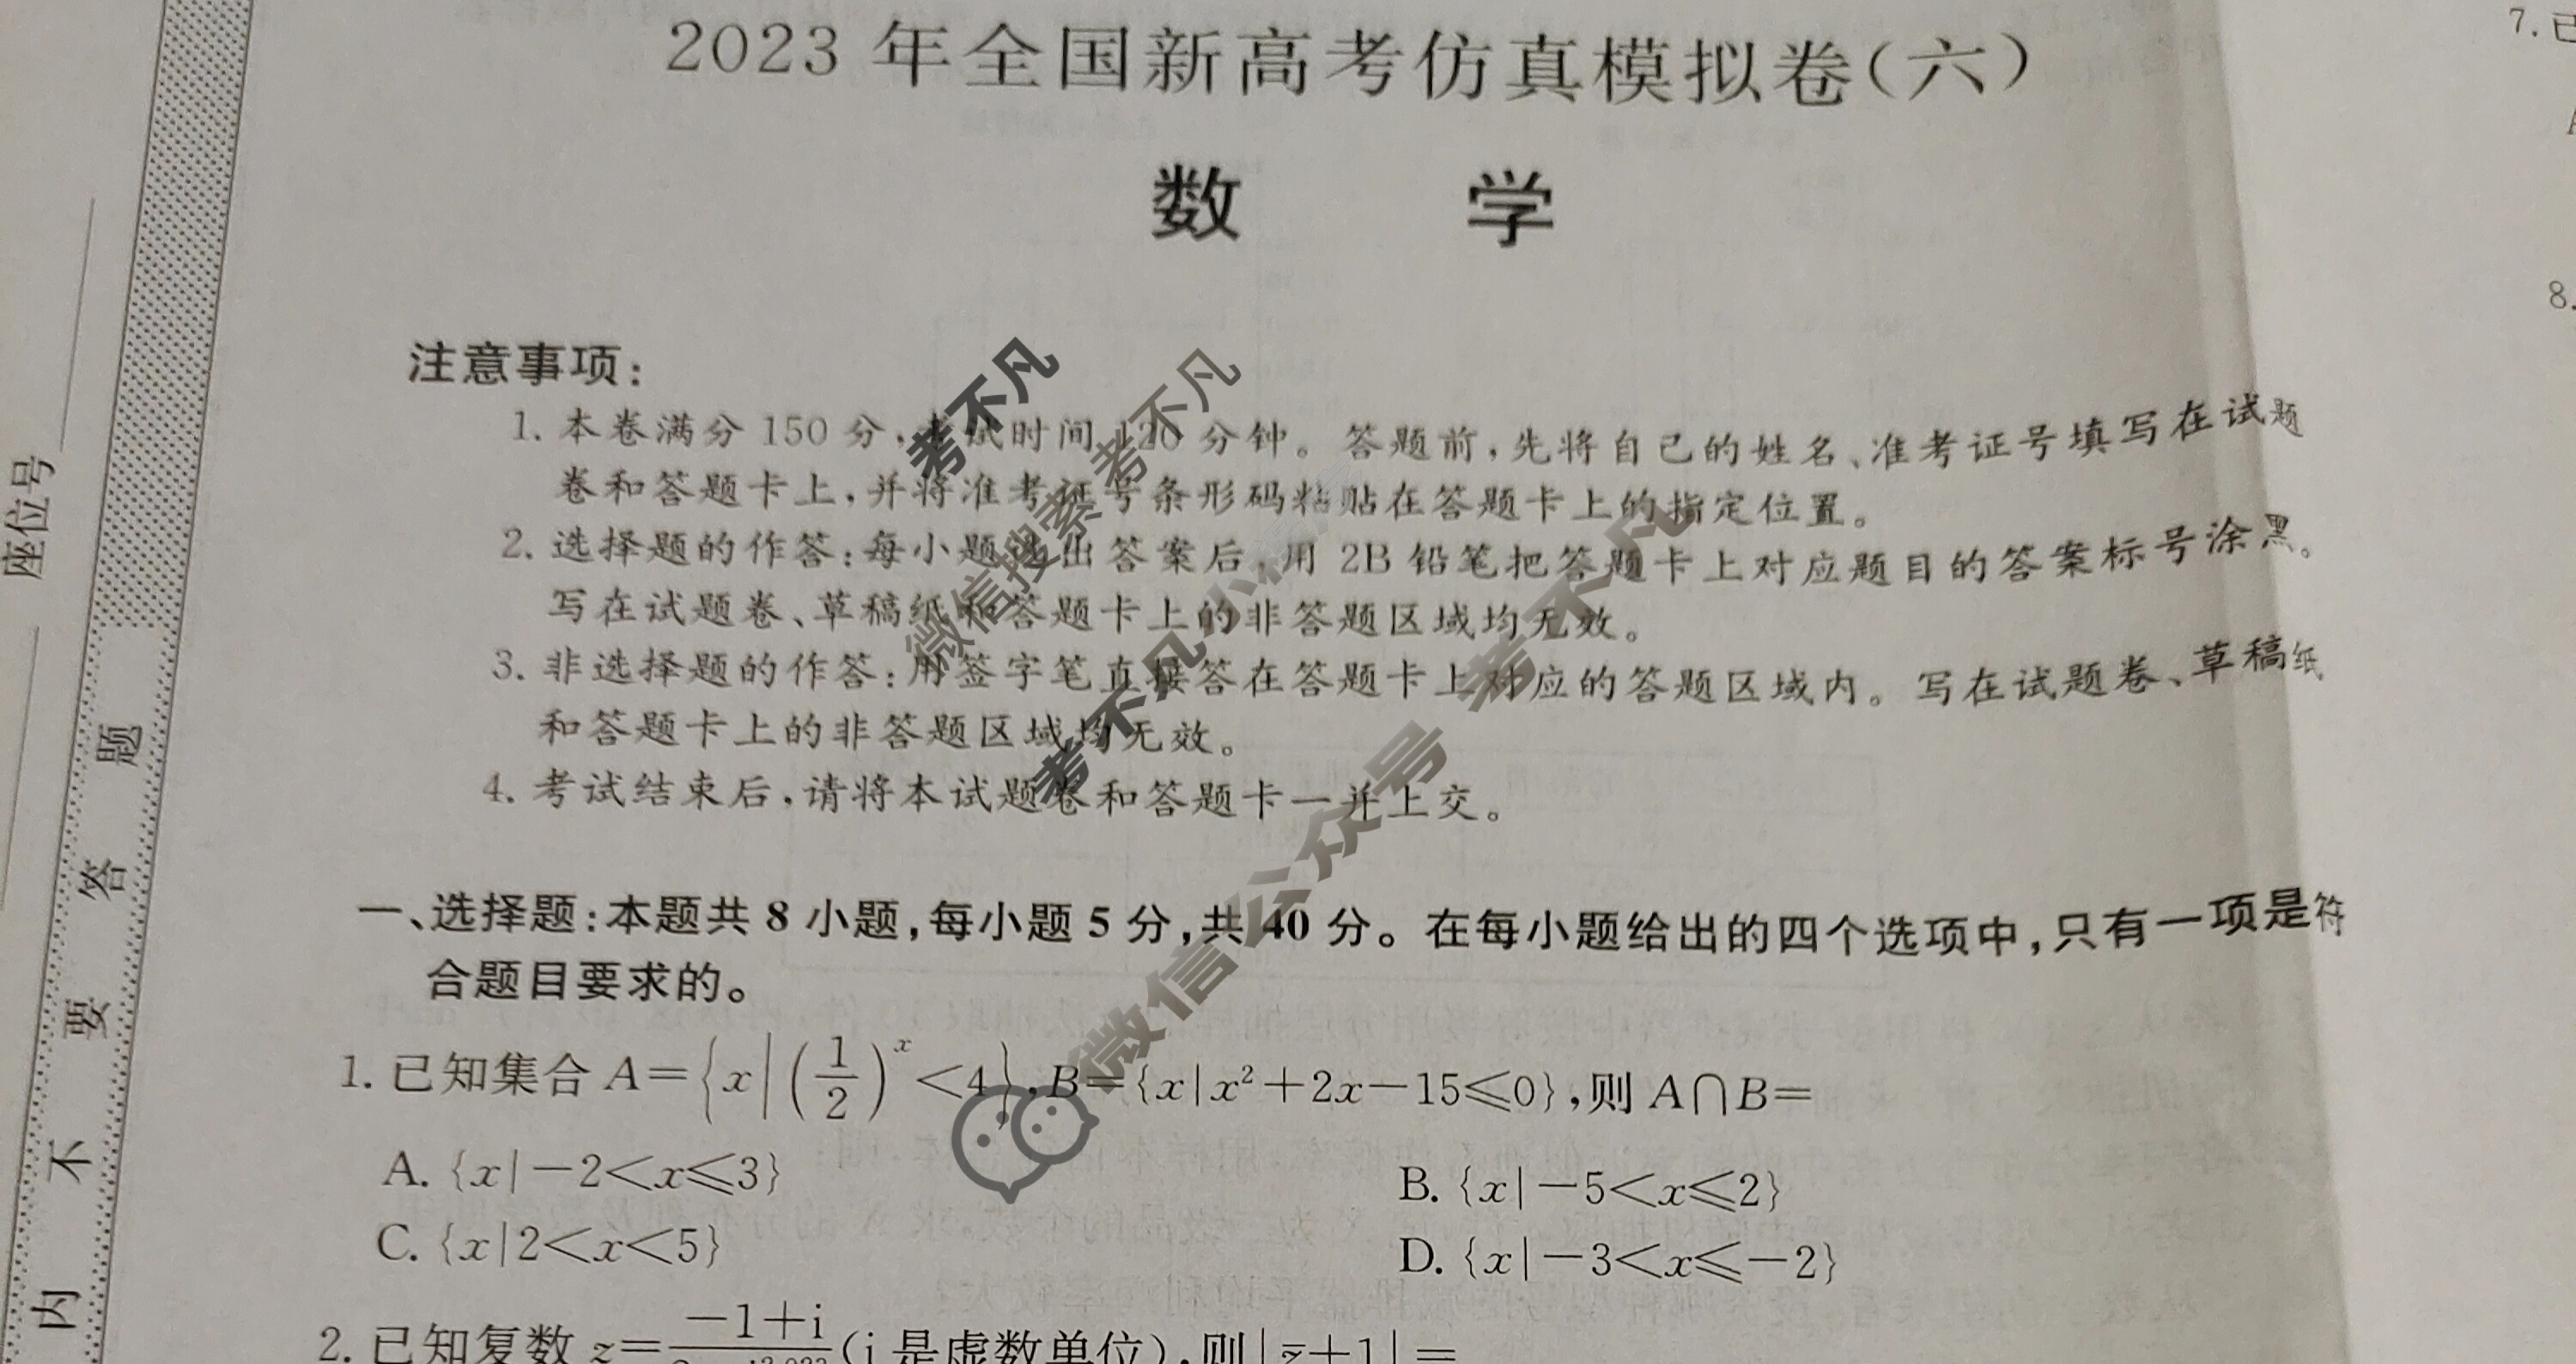 2023年全国新高考仿真模拟卷(六)
数 学
注意事项:
1. 本卷满分150分,考试时间120分钟。答题前,先将自己的姓名、准考证号填写在试题
卷和答题卡上,并将准考证号条形码粘贴在答题卡上的指定位置。
2. 选择题的作答:每小题选出答案后,用2B铅笔把答题卡上对应题目的答案标号涂黑。
写在试题卷、草稿纸和答题卡上的非答题区域均无效。
3. 非选择题的作答:用签字笔直接答在答题卡上对应的答题区域内。写在试题卷、草稿纸
和答题卡上的非答题区域均无效。
4. 考试结束后,请将本试题卷和答题卡一并上交。
一、选择题:本题共8小题,每小题5分,共40分。在每小题给出的四个选项中,只有一项是符
合题目要求的。
1. 已知集合A={x|(1/2)^x<4},B={x|x²+2x-15≤0},则A∩B=
A. {x|-2<x≤3}
B. {x|-5<x≤2}
C. {x|2<x<5}
D. {x|-3<x≤-2}
2. 已知复数z=
-1+i
(i是虚数单位),则|z̄+1|=
7. 已
8.
座位号
题
答
要
不
内
考不凡
微信搜索 考不凡
考不凡小
微信公众号 考不凡